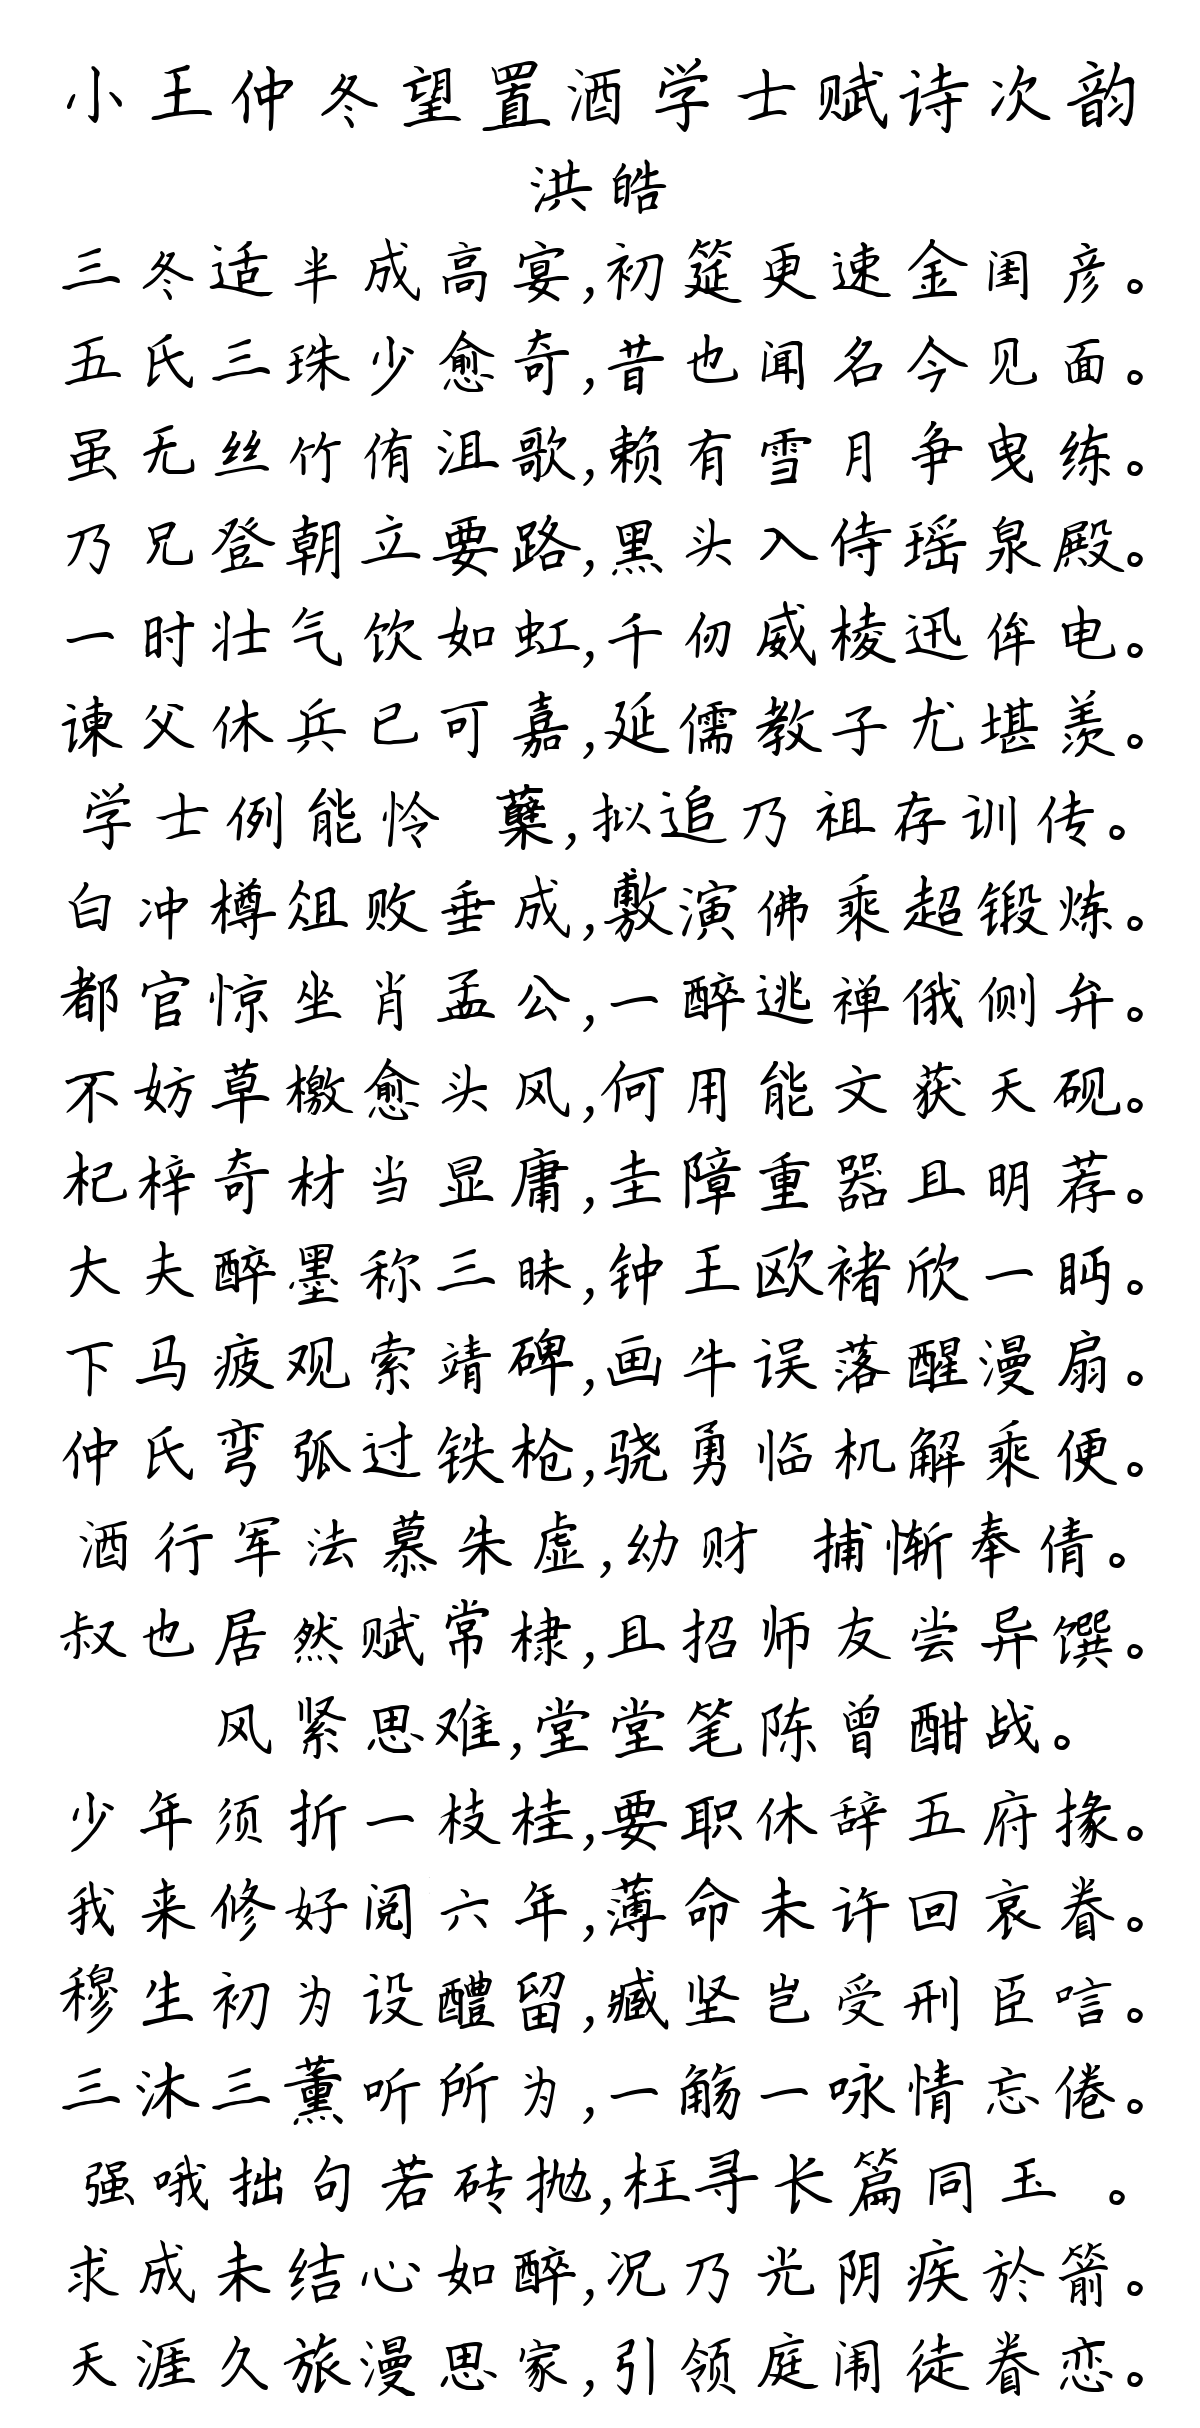 小王仲冬望置酒学士赋诗次韵
洪皓
三冬适半成高宴,初筵更速金闺彦。
五氏三珠少愈奇,昔也闻名今见面。
虽无丝竹侑沮歌,赖有雪月争曳练。
乃兄登朝立要路,黑头入侍瑶泉殿。
一时壮气饮如虹,千仞威棱迅侔电。
谏父休兵已可嘉,延儒教子尤堪羡。
学士例能怜 蘖,拟追乃祖存训传。
白冲樽俎败垂成,敷演佛乘超锻炼。
都官惊坐肖孟公,一醉逃禅俄侧弁。
不妨草檄愈头风,何用能文获天砚。
杞梓奇材当显庸,圭障重器且明荐。
大夫醉墨称三昧,钟王欧褚欣一眄。
下马疲观索靖碑,画牛误落醒漫扇。
仲氏弯弧过铁枪,骁勇临机解乘便。
酒行军法慕朱虚,幼财 捕惭奉倩。
叔也居然赋常棣,且招师友尝异馔。
风紧思难,堂堂笔陈曾酣战。
少年须折一枝桂,要职休辞五府掾。
我来修好阅六年,薄命未许回哀眷。
穆生初为设醴留,臧坚岂受刑臣唁。
三沐三薰听所为,一觞一咏情忘倦。
强哦拙句若砖抛,枉寻长篇同玉 。
求成未结心如醉,况乃光阴疾於箭。
天涯久旅漫思家,引领庭闱徒眷恋。